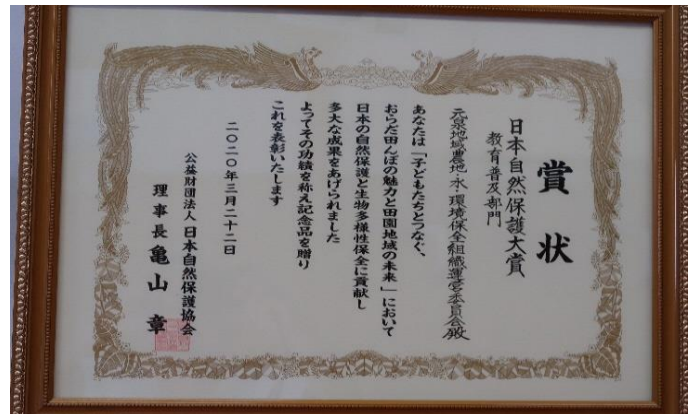 賞状
日本自然保護大賞
教育普及部門
元泉地域農地・水・環境保全組織運営委員会殿
あなたは「子どもたちとつなぐ、
おらだ田んぼの魅力と田園地域の未来」において
日本の自然保護と生物多様性保全に貢献し
多大な成果をあげられました
よってその功績を称え記念品を贈り
これを表彰いたします
二〇二〇年三月二十二日
公益財団法人 日本自然保護協会
理事長 亀山 章